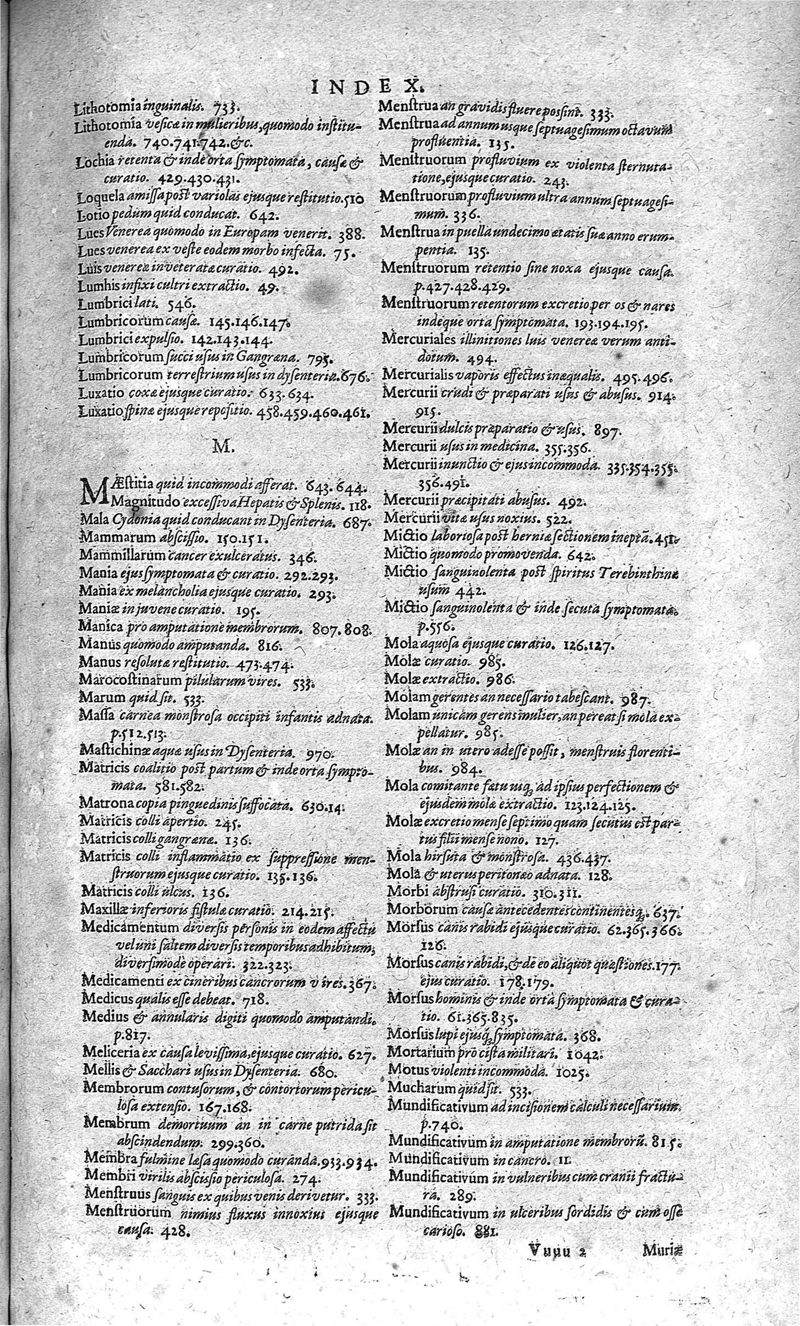 INDEX.
Lithotomia inguinalis. 733.
Lithotomia vesicæ in mulieribus, quomodo institu-
enda. 740.741.742.&c.
Lochia retenta & inde orta symptomata, causæ &
curatio. 429.430.431.
Loquela amissa post variolas ejusque restitutio. 510
Lotio pedum quid conducat. 642.
Lues Venerea quomodo in Europam venerit. 388.
Lues venerea ex veste eodem morbo infecta. 75.
Luis venereæ inveteratæ curatio. 492.
Lumbis infixi cultri extractio. 49.
Lumbrici lati. 546.
Lumbricorum causæ. 145.146.147.
Lumbrici expulsio. 142.143.144.
Lumbricorum succi usus in Gangræna. 795.
Lumbricorum terrestrium usus in dysenteria. 676.
Luxatio coxæ ejusque curatio. 633.634.
Luxatio spinæ ejusque repositio. 458.459.460.461.
M.
MÆstitia quid incommodi afferat. 643.644.
Magnitudo excessiva Hepatis & Splenis. 118.
Mala Cydonia quid conducant in Dysenteria. 687.
Mammarum abscissio. 150.151.
Mammillarum cancer exulceratus. 346.
Mania ejus symptomata & curatio. 292.293.
Mania ex melancholia ejusque curatio. 293.
Maniæ in juvene curatio. 195.
Manica pro amputatione membrorum. 807.808.
Manus quomodo amputanda. 816.
Manus resolutæ restitutio. 473.474.
Marocostinarum pilularum vires. 533.
Marum quid sit. 533.
Massa carnea monstrosa occipiti infantis adnata.
p.512.513.
Mastichinæ aquæ usus in Dysenteria. 970.
Matricis coalitio post partum & inde orta sympto-
mata. 581.582.
Matrona copia pinguedinis suffocata. 630.14.
Matricis colli apertio. 245.
Matricis colli gangræna. 136.
Matricis colli inflammatio ex suppressione men-
struorum ejusque curatio. 135.136.
Matricis colli ulcus. 136.
Maxillæ inferioris fistulæ curatio. 214.215.
Medicamentum diversis personis in eodem affectu
vel uni saltem diversis temporibus adhibitum,
diversimodè operari. 322.323.
Medicamenti ex cineribus cancrorum vires. 367.
Medicus qualis esse debeat. 718.
Medius & annularis digiti quomodo amputandi.
p.817.
Meliceria ex causa levissima, ejusque curatio. 627.
Mellis & Sacchari usus in Dysenteria. 680.
Membrorum contusorum, & contortorum pericu-
losa extensio. 167.168.
Membrum demortuum an in carne putrida sit
abscindendum. 299.360.
Membra fulmine læsa quomodo curanda. 933.934.
Membri virilis abscissio periculosa. 274.
Menstruus sanguis ex quibus venis derivetur. 333.
Menstruorum nimius fluxus innoxius ejusque
causa. 428.
Menstrua an gravidis fluere possint. 333.
Menstrua ad annum usque septuagesimum octavum
profluentia. 135.
Menstruorum profluvium ex violenta sternuta-
tione, ejusque curatio. 243.
Menstruorum profluvium ultra annum septuagesi-
mum. 336.
Menstrua in puella undecimo ætatis suæ anno erum-
pentia. 135.
Menstruorum retentio sine noxa ejusque causa.
p.427.428.429.
Menstruorum retentorum excretio per os & nares
indeque orta symptomata. 193.194.195.
Mercuriales illinitiones luis venereæ verum anti-
dotum. 494.
Mercurialis vaporis effectus inæqualis. 495.496.
Mercurii crudi & præparati usus & abusus. 914.
915.
Mercurii dulcis præparatio & usus. 897.
Mercurii usus in medicina. 355.356.
Mercurii inunctio & ejus incommoda. 335.354.355.
356.491.
Mercurii præcipitati abusus. 492.
Mercurii vitæ usus noxius. 522.
Mictio laboriosa post herniæ sectionem ineptā. 451.
Mictio quomodo promovenda. 642.
Mictio sanguinolenta post spiritus Terebinthinæ
usum 442.
Mictio sanguinolenta & inde secuta symptomata.
p.556.
Mola aquosa ejusque curatio. 126.127.
Molæ curatio. 985.
Molæ extractio. 986.
Molam gerentes an necessario tabescant. 987.
Molam unicam gerens mulier, an pereat si mola ex-
pellatur. 985.
Molæ an in utero adesse possit, menstruis florenti-
bus. 984.
Mola comitante fœtu uiq; ad ipsius perfectionem &
ejusdem molæ extractio. 123.124.125.
Molæ excretio mense septimo quam secutus est par-
tus filii mense nono. 127.
Mola hirsuta & monstrosa. 436.437.
Mola & uterus peritonæo adnata. 128.
Morbi abstrusi curatio. 310.311.
Morborum causæ antecedentes continentesq; 637.
Morsus canis rabidi ejusque curatio. 62.365.366.
126.
Morsus canis rabidi, & de eo aliquot quæstiones. 177.
ejus curatio. 178.179.
Morsus hominis & inde orta symptomata & cura-
tio. 61.365.835.
Morsus lupi ejusq; symptomata. 368.
Mortarium pro cista militari. 1042.
Motus violenti incommoda. 1025.
Mucharum quid sit. 533.
Mundificativum ad incisionem calculi necessarium.
p.740.
Mundificativum in amputatione membrorū. 815.
Mundificativum in cancro. 11.
Mundificativum in vulneribus cum cranii fractu-
ra. 289.
Mundificativum in ulceribus sordidis & cum osse
carioso. 881.
Vuuu 2 Muriæ